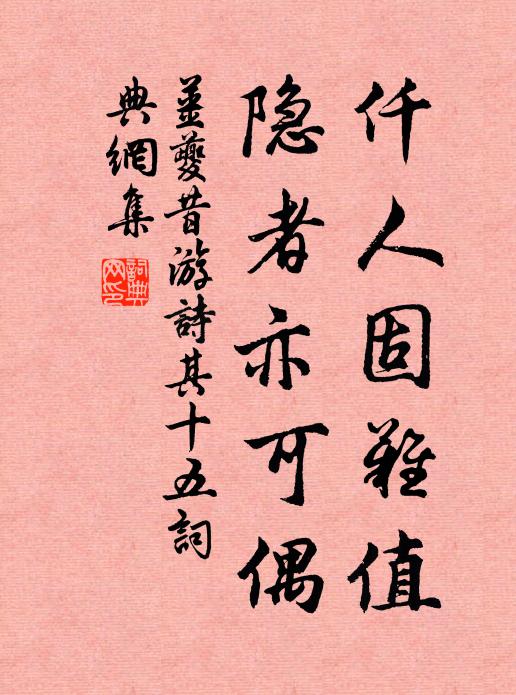 仟人固难值
隐者亦可偶
姜夔昔游詩其十五詞
典網集
詞典网印